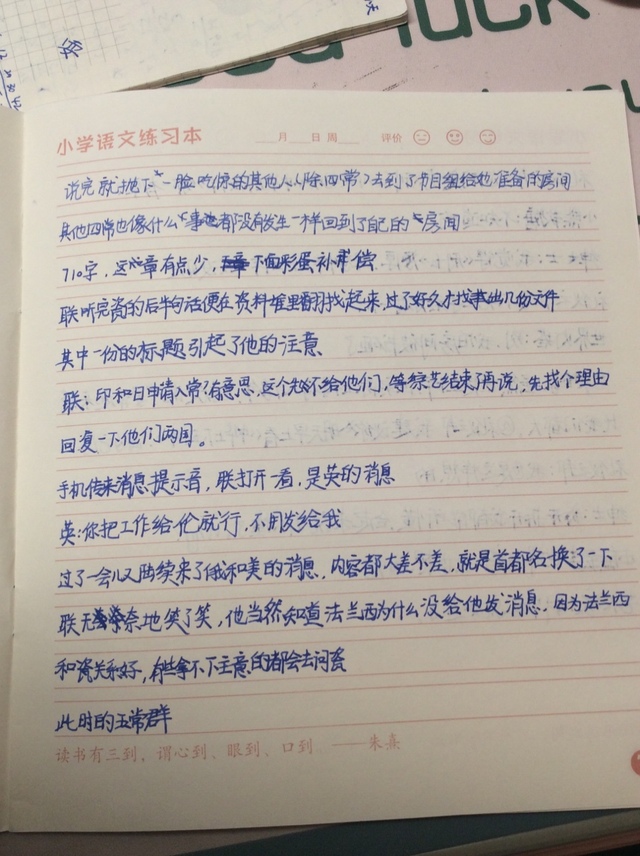 小学语文练习本 月 日 周 评价
说完就抛下一脸吃惊的其他人(除四常)去到了节目组给他准备的房间
其他四常也像什么事也都没有发生一样回到了自己的房间
710字，这章有点少，下面彩蛋补偿
联听完瓷的后半句话便在资料堆里翻找起来,过了好久才找出几份文件
其中一份的标题引起了他的注意
联：印和日申请入常?有意思,这个想不给他们,等综艺结束了再说,先找个理由
回复一下他们两国。
手机传来消息提示音，联打开一看，是英的消息
英:你把工作给伦就行,不用发给我
过了一会儿又陆续来了俄和美的消息，内容都大差不差，就是首都名换了一下
联无奈地笑了笑，他当然知道法兰西为什么没给他发消息，因为法兰西
和瓷关系好，有些拿不下主意的都会去问瓷
此时的五常群
读书有三到，谓心到、眼到、口到 ——朱熹